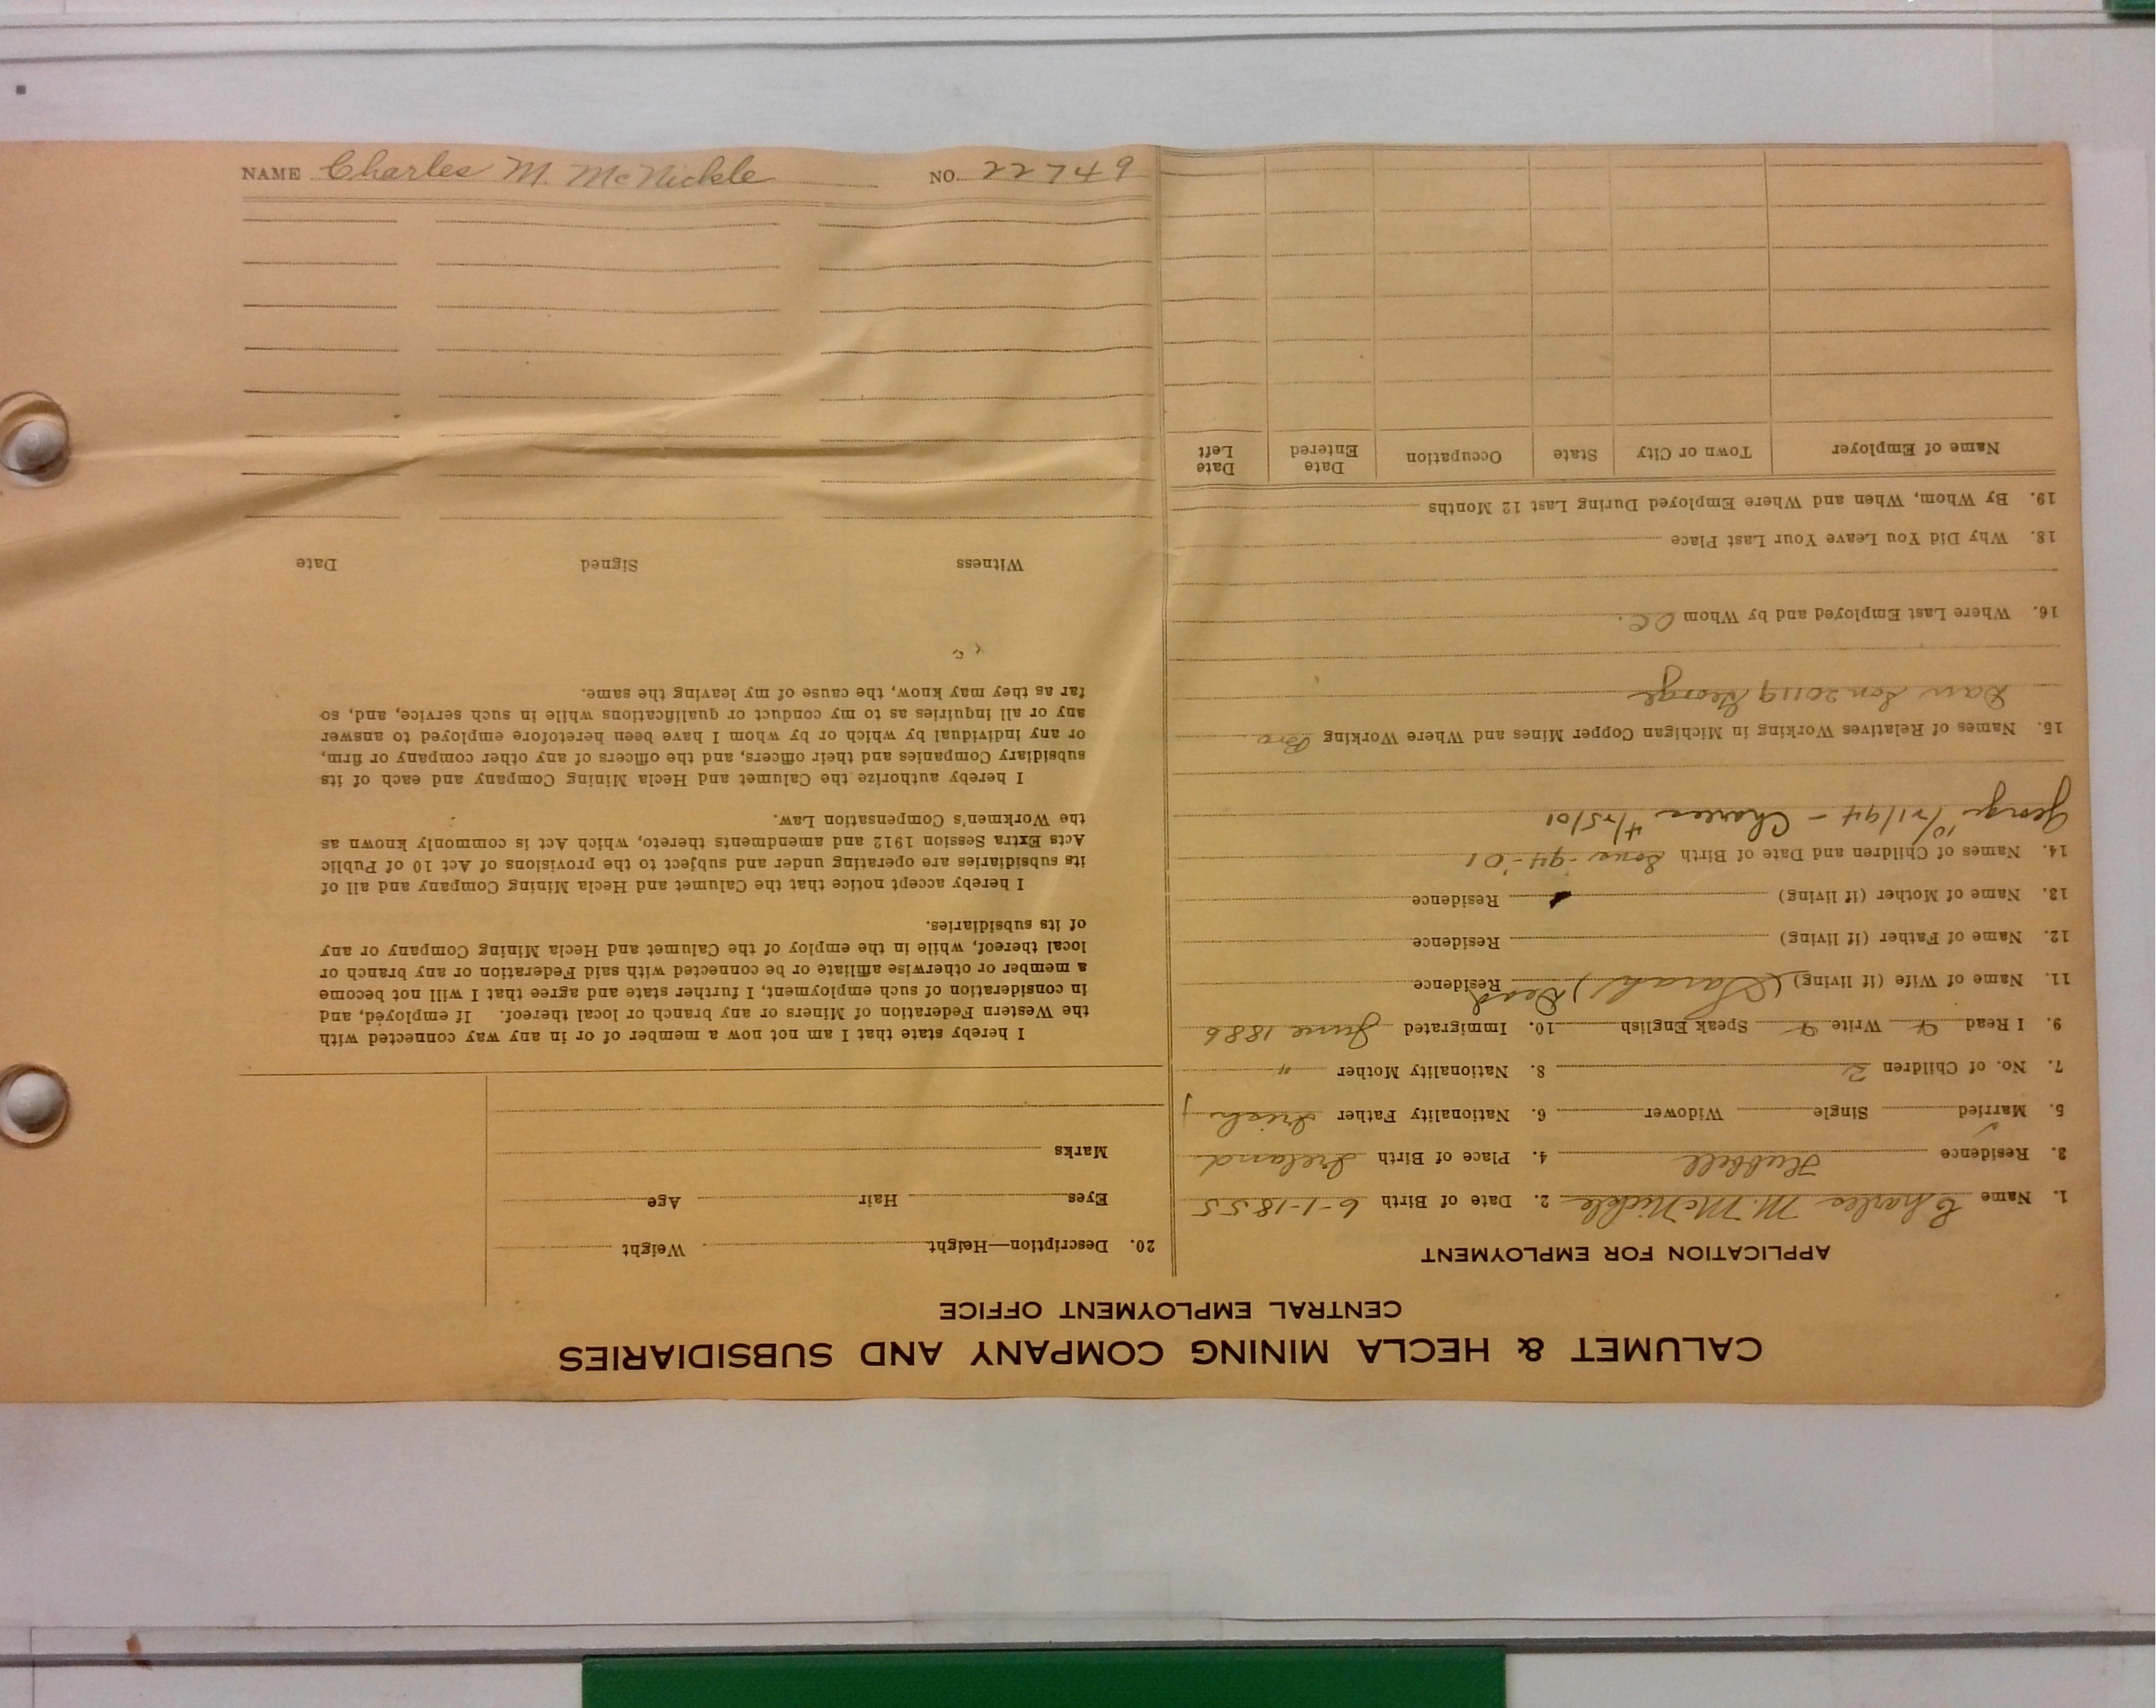 NAME Charles M. McNickle NO. 22749
CALUMET & HECLA MINING COMPANY AND SUBSIDIARIES
CENTRAL EMPLOYMENT OFFICE
APPLICATION FOR EMPLOYMENT
1. Name Charles M. McNickle 2. Date of Birth 6-1-1855
3. Residence Hubbell 4. Place of Birth Ireland
5. Married Single Widower 6. Nationality Father Irish
7. No. of Children 2 8. Nationality Mother "
9. I Read Write Speak English 10. Immigrated June 1886
11. Name of Wife (if living) (Sarah) Dead Residence
12. Name of Father (if living) Residence
13. Name of Mother (if living) Residence
14. Names of Children and Date of Birth Sons -94-01
George 10/21/94 - Charles 4/25/01
15. Names of Relatives Working in Michigan Copper Mines and Where Working Bro.
Dan Son 20119 George
16. Where Last Employed and by Whom
18. Why Did You Leave Your Last Place
19. By Whom, When and Where Employed During Last 12 Months
Name of Employer Town or City State Occupation Date Entered Date Left
20. Description—Height Weight
Eyes Hair Age
Marks
I hereby state that I am not now a member of or in any way connected with
the Western Federation of Miners or any branch or local thereof. If employed, and
in consideration of such employment, I further state and agree that I will not become
a member or otherwise affiliate or be connected with said Federation or any branch or
local thereof, while in the employ of the Calumet and Hecla Mining Company or any
of its subsidiaries.
I hereby accept notice that the Calumet and Hecla Mining Company and all of
its subsidiaries are operating under and subject to the provisions of Act 10 of Public
Acts Extra Session 1912 and amendments thereto, which Act is commonly known as
the Workmen's Compensation Law.
I hereby authorize the Calumet and Hecla Mining Company and each of its
subsidiary Companies and their officers, and the officers of any other company or firm,
or any individual by which or by whom I have been heretofore employed to answer
any or all inquiries as to my conduct or qualifications while in such service, and, so
far as they may know, the cause of my leaving the same.
Witness Signed Date